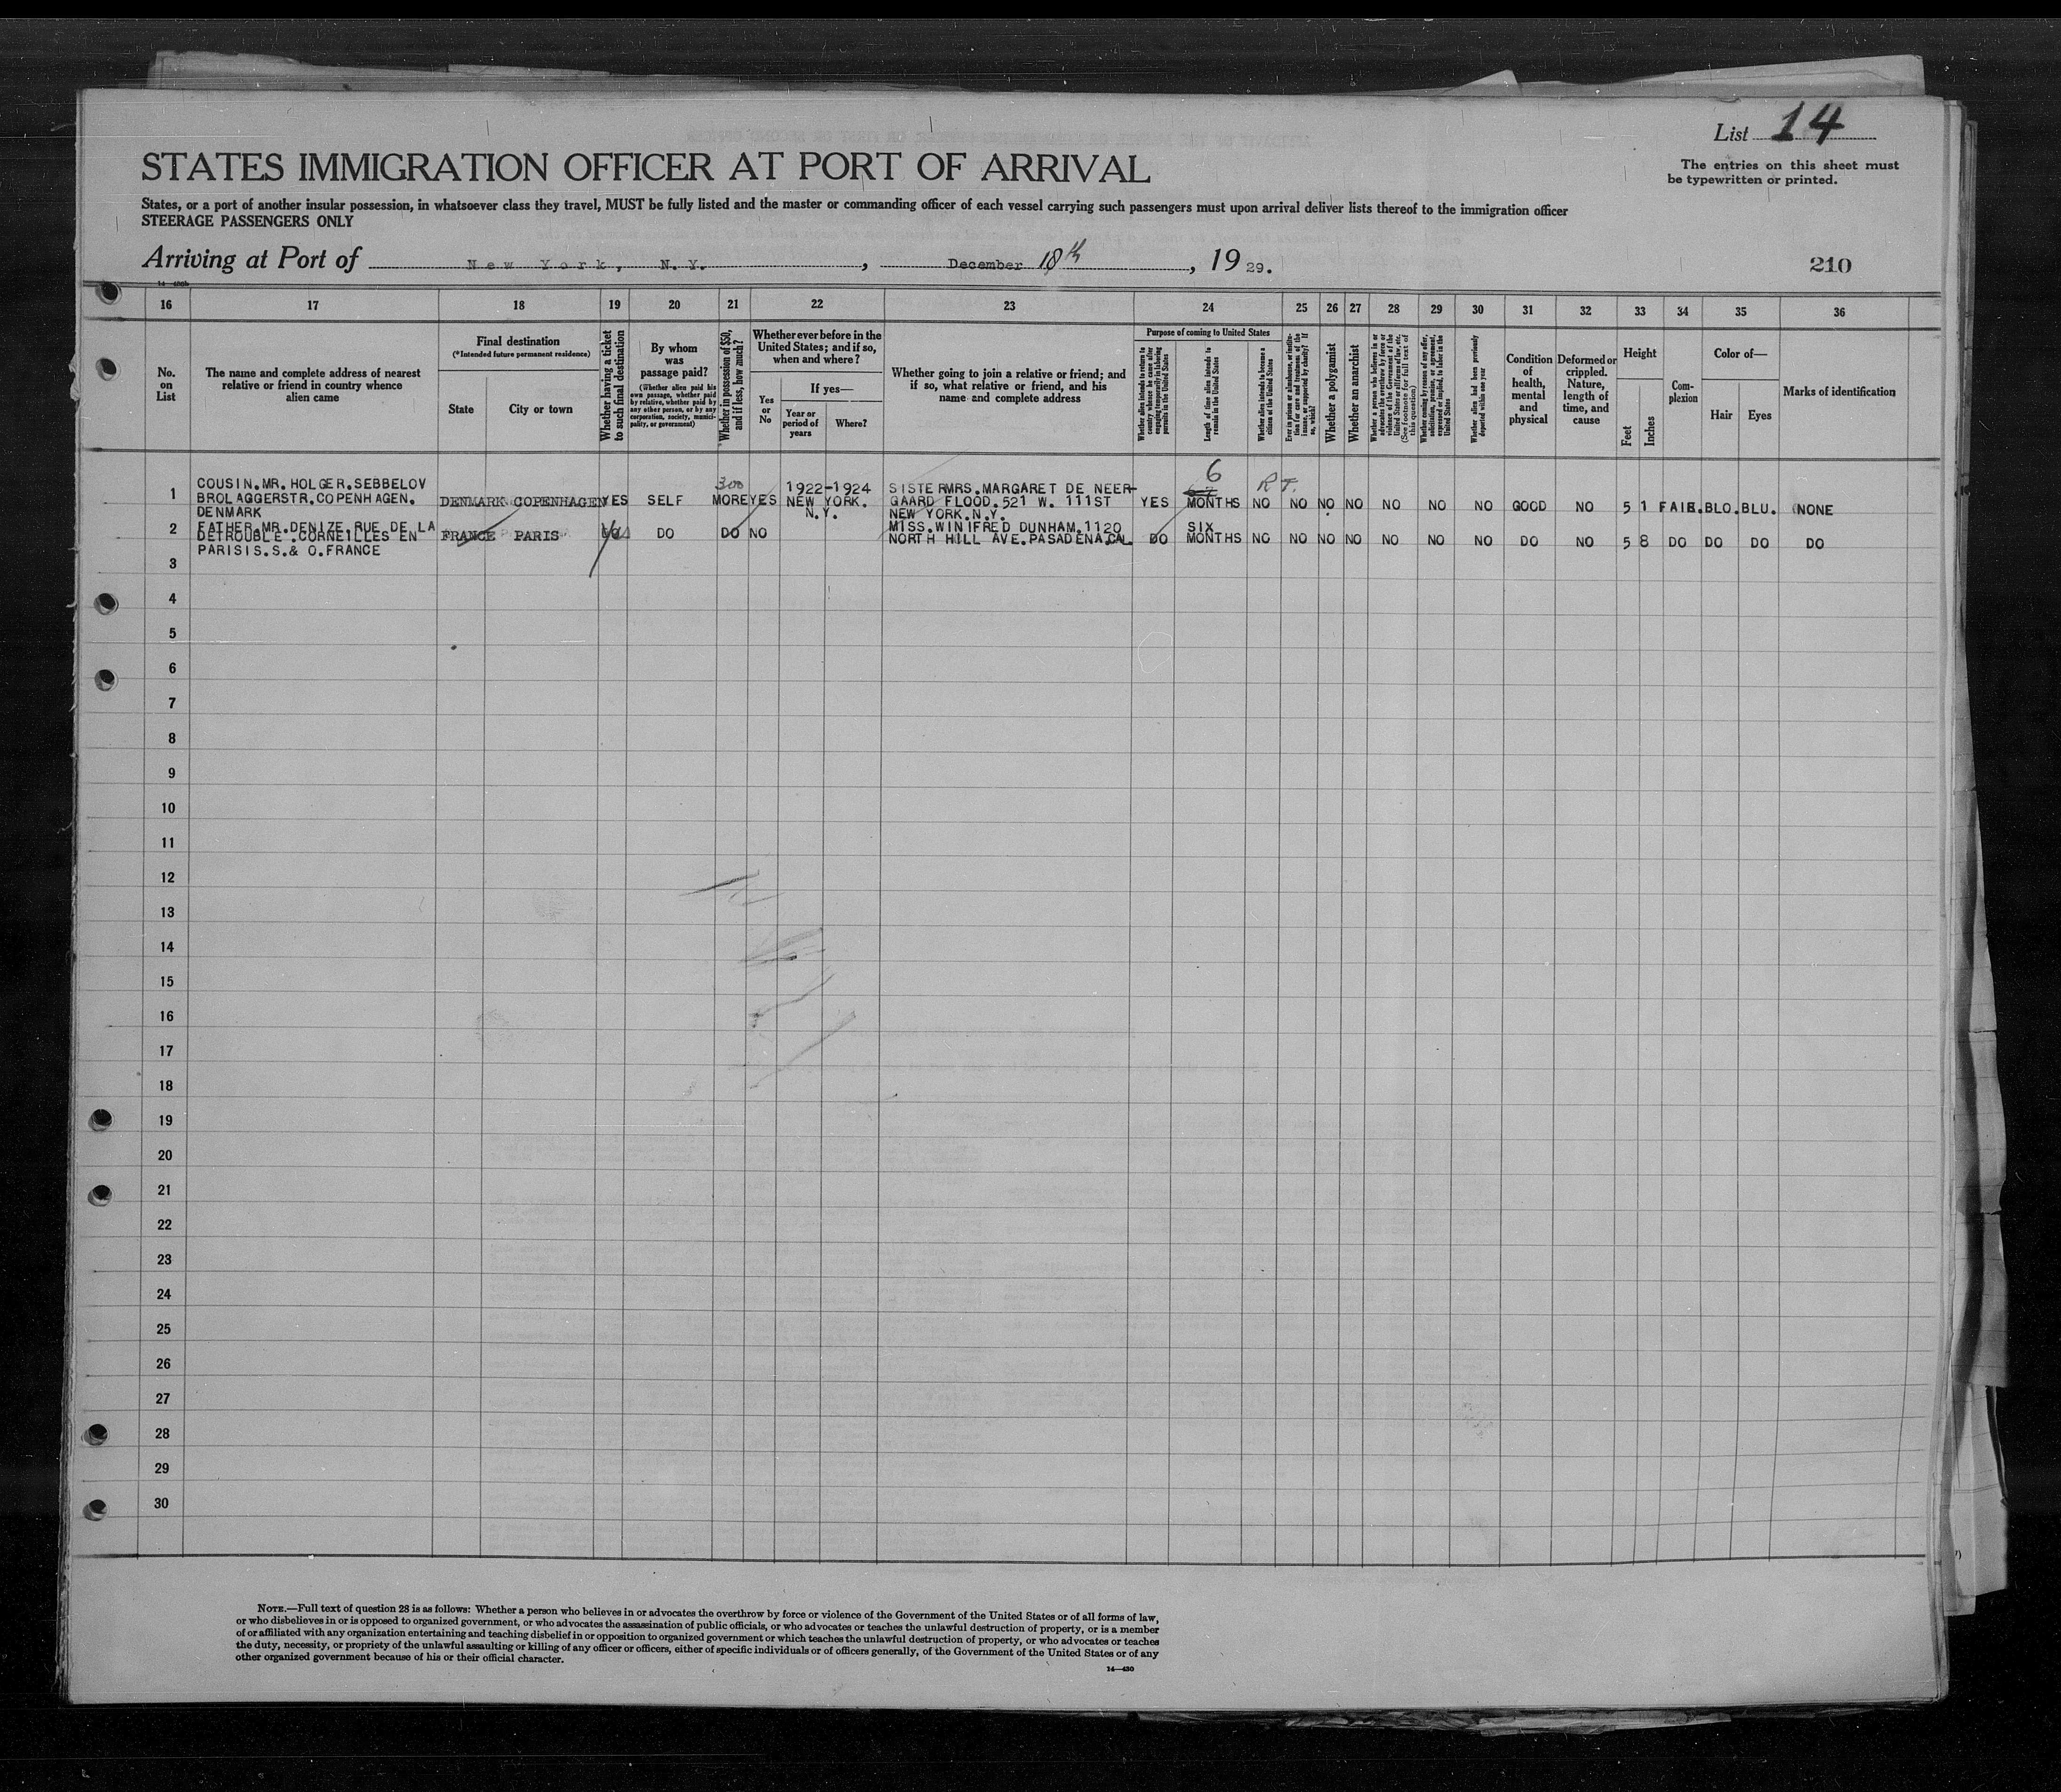 List 14
The entries on this sheet must
be typewritten or printed.
STATES IMMIGRATION OFFICER AT PORT OF ARRIVAL
States, or a port of another insular possession, in whatsoever class they travel, MUST be fully listed and the master or commanding officer of each vessel carrying such passengers must upon arrival deliver lists thereof to the immigration officer
STEERAGE PASSENGERS ONLY
Arriving at Port of New York, N.Y., December 18th, 1929.
210
16 17 18 19 20 21 22 23 24 25 26 27 28 29 30 31 32 33 34 35 36
No.
on
List
The name and complete address of nearest
relative or friend in country whence
alien came
Final destination
(*Intended future permanent residence)
State
City or town
Whether having a ticket
to such final destination
By whom
was
passage paid?
(Whether alien paid his
own passage, whether paid
by relative, whether paid by
any other person, or by any
corporation, society, munici-
pality, or government)
Whether in possession of $50,
and if less, how much?
Whether ever before in the
United States; and if so,
when and where?
Yes
or
No
If yes—
Year or
period of
years
Where?
Whether going to join a relative or friend; and
if so, what relative or friend, and his
name and complete address
Purpose of coming to United States
Whether alien intends to return to
country whence he came after
engaging temporarily in laboring
pursuits in the United States
Length of time alien intends to
remain in the United States
Whether alien intends to become a
citizen of the United States
Ever in prison or almshouse, or institu-
tion for care and treatment of the
insane, or supported by charity? If
so, which?
Whether a polygamist
Whether an anarchist
Whether a person who believes in or
advocates the overthrow by force or
violence of the Government of the
United States or all forms of law, etc.
(See footnote for full text of
this question)
Whether coming by reason of any offer,
solicitation, promise, or agreement,
expressed or implied, to labor in the
United States
Whether alien had been previously
deported within one year
Condition
of
health,
mental
and
physical
Deformed or
crippled.
Nature,
length of
time, and
cause
Height
Feet
Inches
Com-
plexion
Color of—
Hair
Eyes
Marks of identification
1
COUSIN.MR.HOLGER.SEBBELOV
BROLAGGERSTR.COPENHAGEN.
DENMARK
DENMARK COPENHAGEN YES SELF 300 MORE YES 1922-1924
NEW YORK.
N.Y.
SISTER MRS.MARGARET DE NEER-
GAARD FLOOD.521 W. 111ST
NEW YORK.N.Y.
YES 6 MONTHS NO R T. NO NO NO NO NO NO GOOD NO 5 1 FAIR. BLO. BLU. NONE
2
FATHER.MR.DENIZE.RUE DE LA
DETROUBLE.CORNEILLES EN
PARISIS.S.& O.FRANCE
FRANCE PARIS DO DO NO
MISS.WINIFRED DUNHAM.1120
NORTH HILL AVE.PASADENA.CAL.
DO SIX
MONTHS NO NO NO NO NO NO NO DO NO 5 8 DO DO DO DO
3
4
5
6
7
8
9
10
11
12
13
14
15
16
17
18
19
20
21
22
23
24
25
26
27
28
29
30
NOTE.—Full text of question 28 is as follows: Whether a person who believes in or advocates the overthrow by force or violence of the Government of the United States or of all forms of law,
or who disbelieves in or is opposed to organized government, or who advocates the assassination of public officials, or who advocates or teaches the unlawful destruction of property, or is a member
of or affiliated with any organization entertaining and teaching disbelief in or opposition to organized government or which teaches the unlawful destruction of property, or who advocates or teaches
the duty, necessity, or propriety of the unlawful assaulting or killing of any officer or officers, either of specific individuals or of officers generally, of the Government of the United States or of any
other organized government because of his or their official character.
14—430